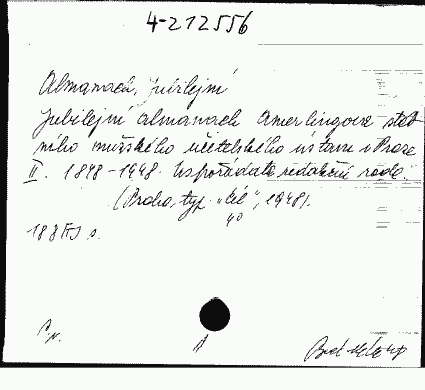 4-212556
Almanach, Jubilejní
Jubilejní almanach Amerlingova stát
ního mužského učitelského ústavu v Praze
II. 1848-1948. Uspořádala redakční rada.
(Praha, typ. „Cíl", 1948).
4°
188 s.